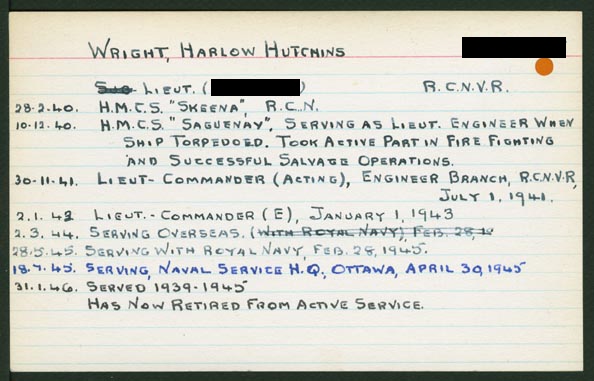 WRIGHT, HARLOW HUTCHINS
SUB LIEUT. ( ) R.C.N.V.R.
28-2-40. H.M.C.S. "SKEENA", R.C.N.
10-12-40. H.M.C.S. "SAGUENAY", SERVING AS LIEUT. ENGINEER WHEN
SHIP TORPEDOED. TOOK ACTIVE PART IN FIRE FIGHTING
AND SUCCESSFUL SALVAGE OPERATIONS.
30-11-41. LIEUT-COMMANDER (ACTING), ENGINEER BRANCH, R.C.N.V.R,
JULY 1, 1941.
2.1.42 LIEUT.-COMMANDER (E), JANUARY 1, 1943
2.3.44. SERVING OVERSEAS. (WITH ROYAL NAVY), FEB. 28,
28-5-45. SERVING WITH ROYAL NAVY, FEB. 28, 1945.
18-7-45. SERVING, NAVAL SERVICE H.Q, OTTAWA, APRIL 30, 1945
31.1.46. SERVED 1939-1945
HAS NOW RETIRED FROM ACTIVE SERVICE.